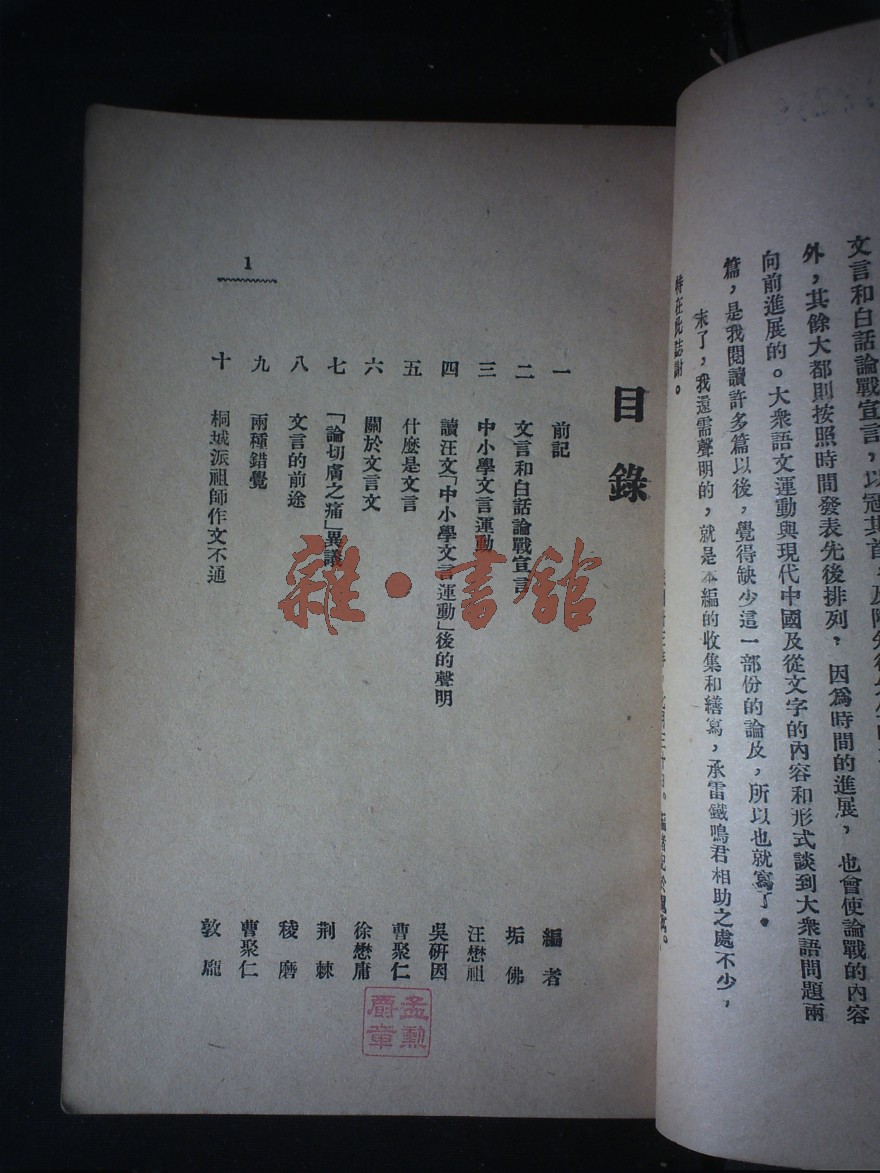 文言和白話論戰宣言，以冠其首，
外，其餘大都則按照時間發表先後排列，因爲時間的進展，也會使論戰的內容
向前進展的。大衆語文運動與現代中國及從文字的內容和形式談到大衆語問題兩
篇，是我閱讀許多篇以後，覺得缺少這一部份的論及，所以也就寫了。
末了，我還需聲明的，就是本編的收集和繕寫，承雷鐵鳴君相助之處不少，
特在此誌謝。
目錄
一 前記 編者
二 文言和白話論戰宣言 垢佛
三 中小學文言運動 汪懋祖
四 讀汪文「中小學文言運動」後的聲明 吳研因
五 什麼是文言 曹聚仁
六 關於文言文 徐懋庸
七 「論切膚之痛」異議 荆棘
八 文言的前途 稜磨
九 兩種錯覺 曹聚仁
十 桐城派祖師作文不通 敦龐
1
雜·書館
孟勳
爵章